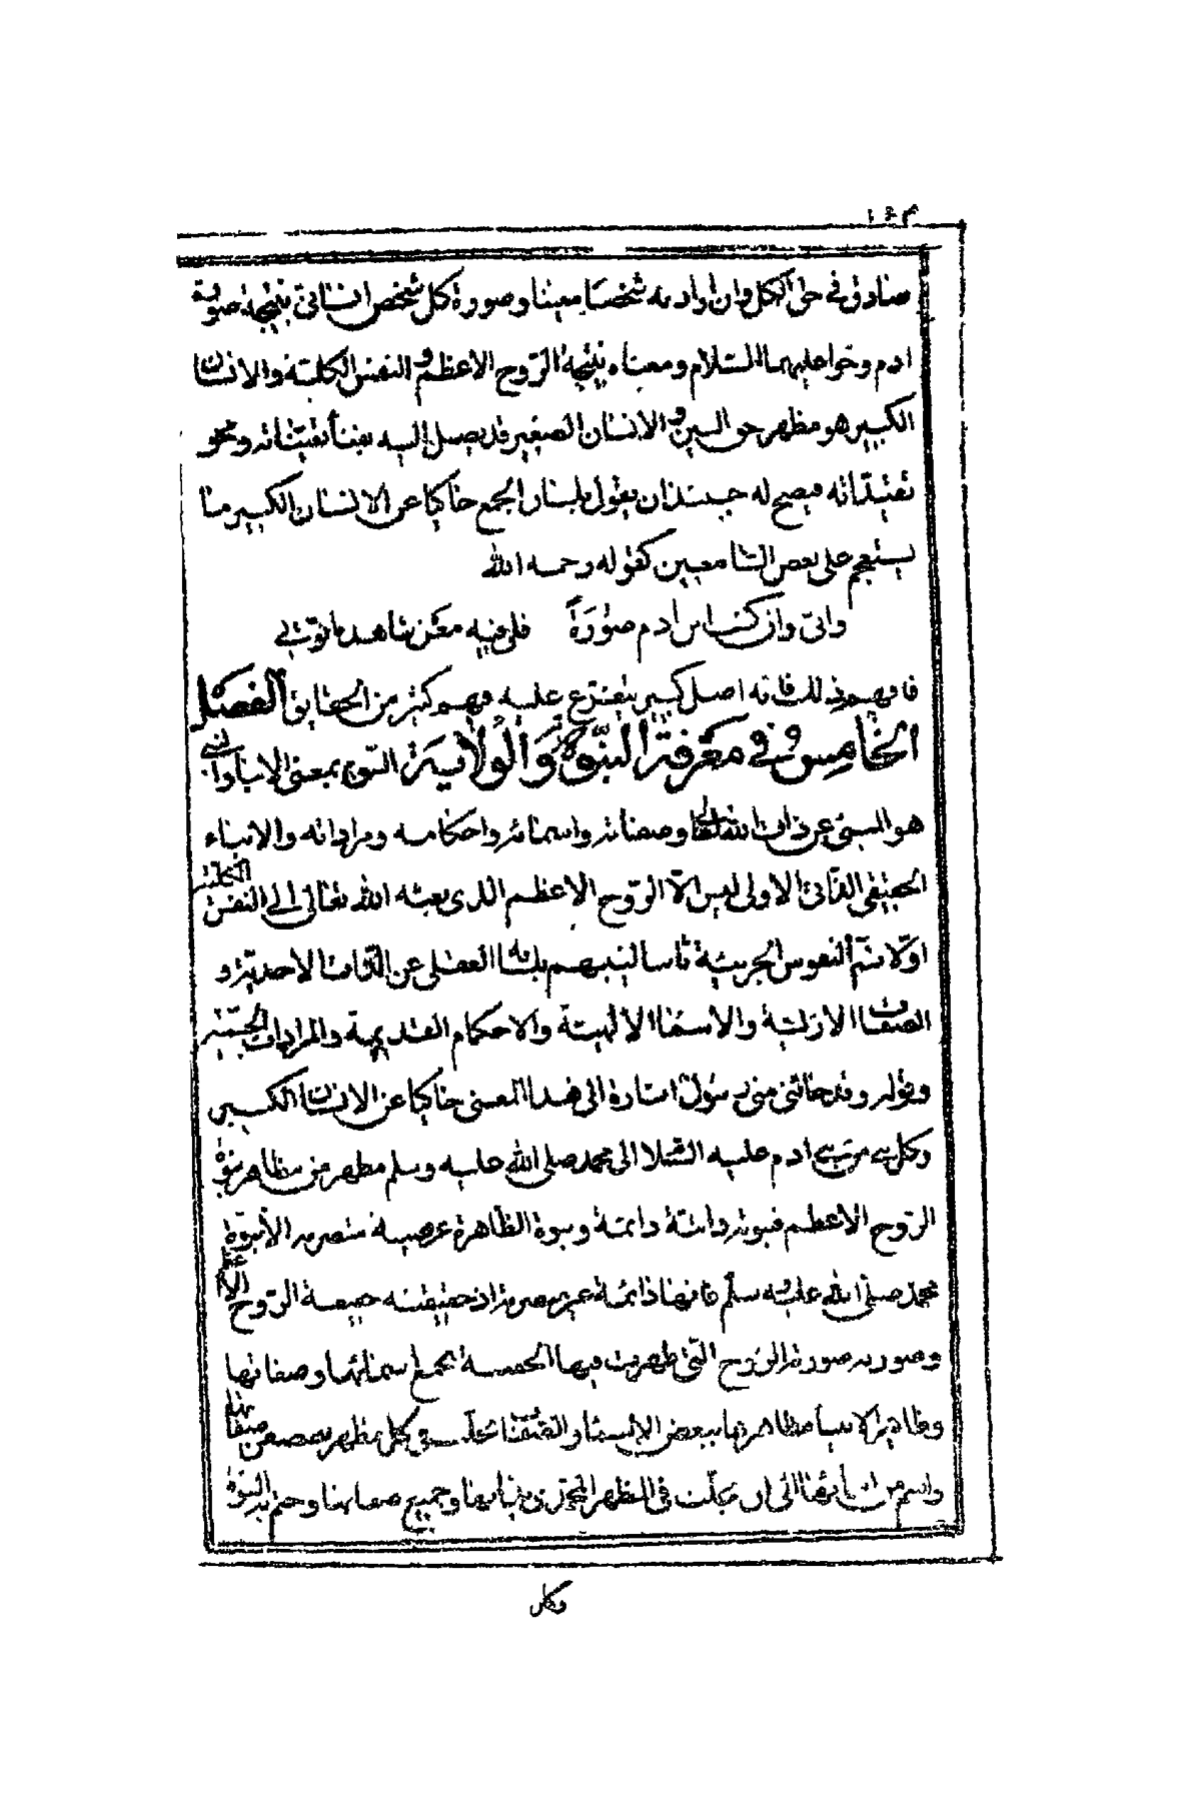 ١٤٣
صادق في حق الكل وان اراد به شخصا معينا وصورة كل شخص انساني نتيجة صورة
ادم وحوا عليهما السلام ومعناه نتيجة الروح الاعظم و النفس الكلية والانسان
الكبير هو مظهر حق السين و الانسان الصغير قد يصل اليه بفنا تعيناته ومحو
تقيداته فيصح له حينئذ ان يقول بلسان الجمع حاكيا عن الانسان الكبير ما
يستعجم على بعض السامعين كقوله رحمه الله
واني وان كنت ابن ادم صورة فلي فيه معنى شاهد بابوتي
فافهم ذلك فانه اصل كبير يتفرع عليه فهم كثير من الحقايق الفصل
الخامس في معرفة النبوة والولاية النبوة بمعنى الانباء والنبي
هو المنبئ عن ذات الله تعالى وصفاته واسمائه واحكامه ومراداته والانباء
الحقيقي الذاتي الاولى ليس الا الروح الاعظم الذي بعثه الله تعالى الى النفس الكلية
اولا ثم النفوس الجزئية ثانيا لينبهم بلسانه العقلى عن الذات الاحدية و
الصفات الازلية والاسماء الالهية والاحكام القديمة والمرادات الحسية
وقوله وقد جائني مني رسول اشارة الى هذا المعنى حاكيا عن الانسان الكبير
وكل نبي من نبي ادم عليه السلام الى محمد صلى الله عليه وسلم مظهر من مظاهر نبوة
الروح الاعظم فنبوته ذاتية دائمة ونبوة الظاهرة عرضية متصرمة الا نبوة
محمد صلى الله عليه و سلم فانها دائمة غير متصرمة اذ حقيقته حقيقة الروح الاعظم
وصورته صورة الروح التي ظهرت فيها الحقيقة بجميع اسمائها وصفاتها
وظاهر الانبيا مظاهرها ببعض الاسماء والصفات تجلت في كل مظهر بصفة من صفاتها
واسم من اسمائها الى ان تجلت في المظهر المحمدي بذاتها وجميع صفاتها وختم به النبوة
وكان